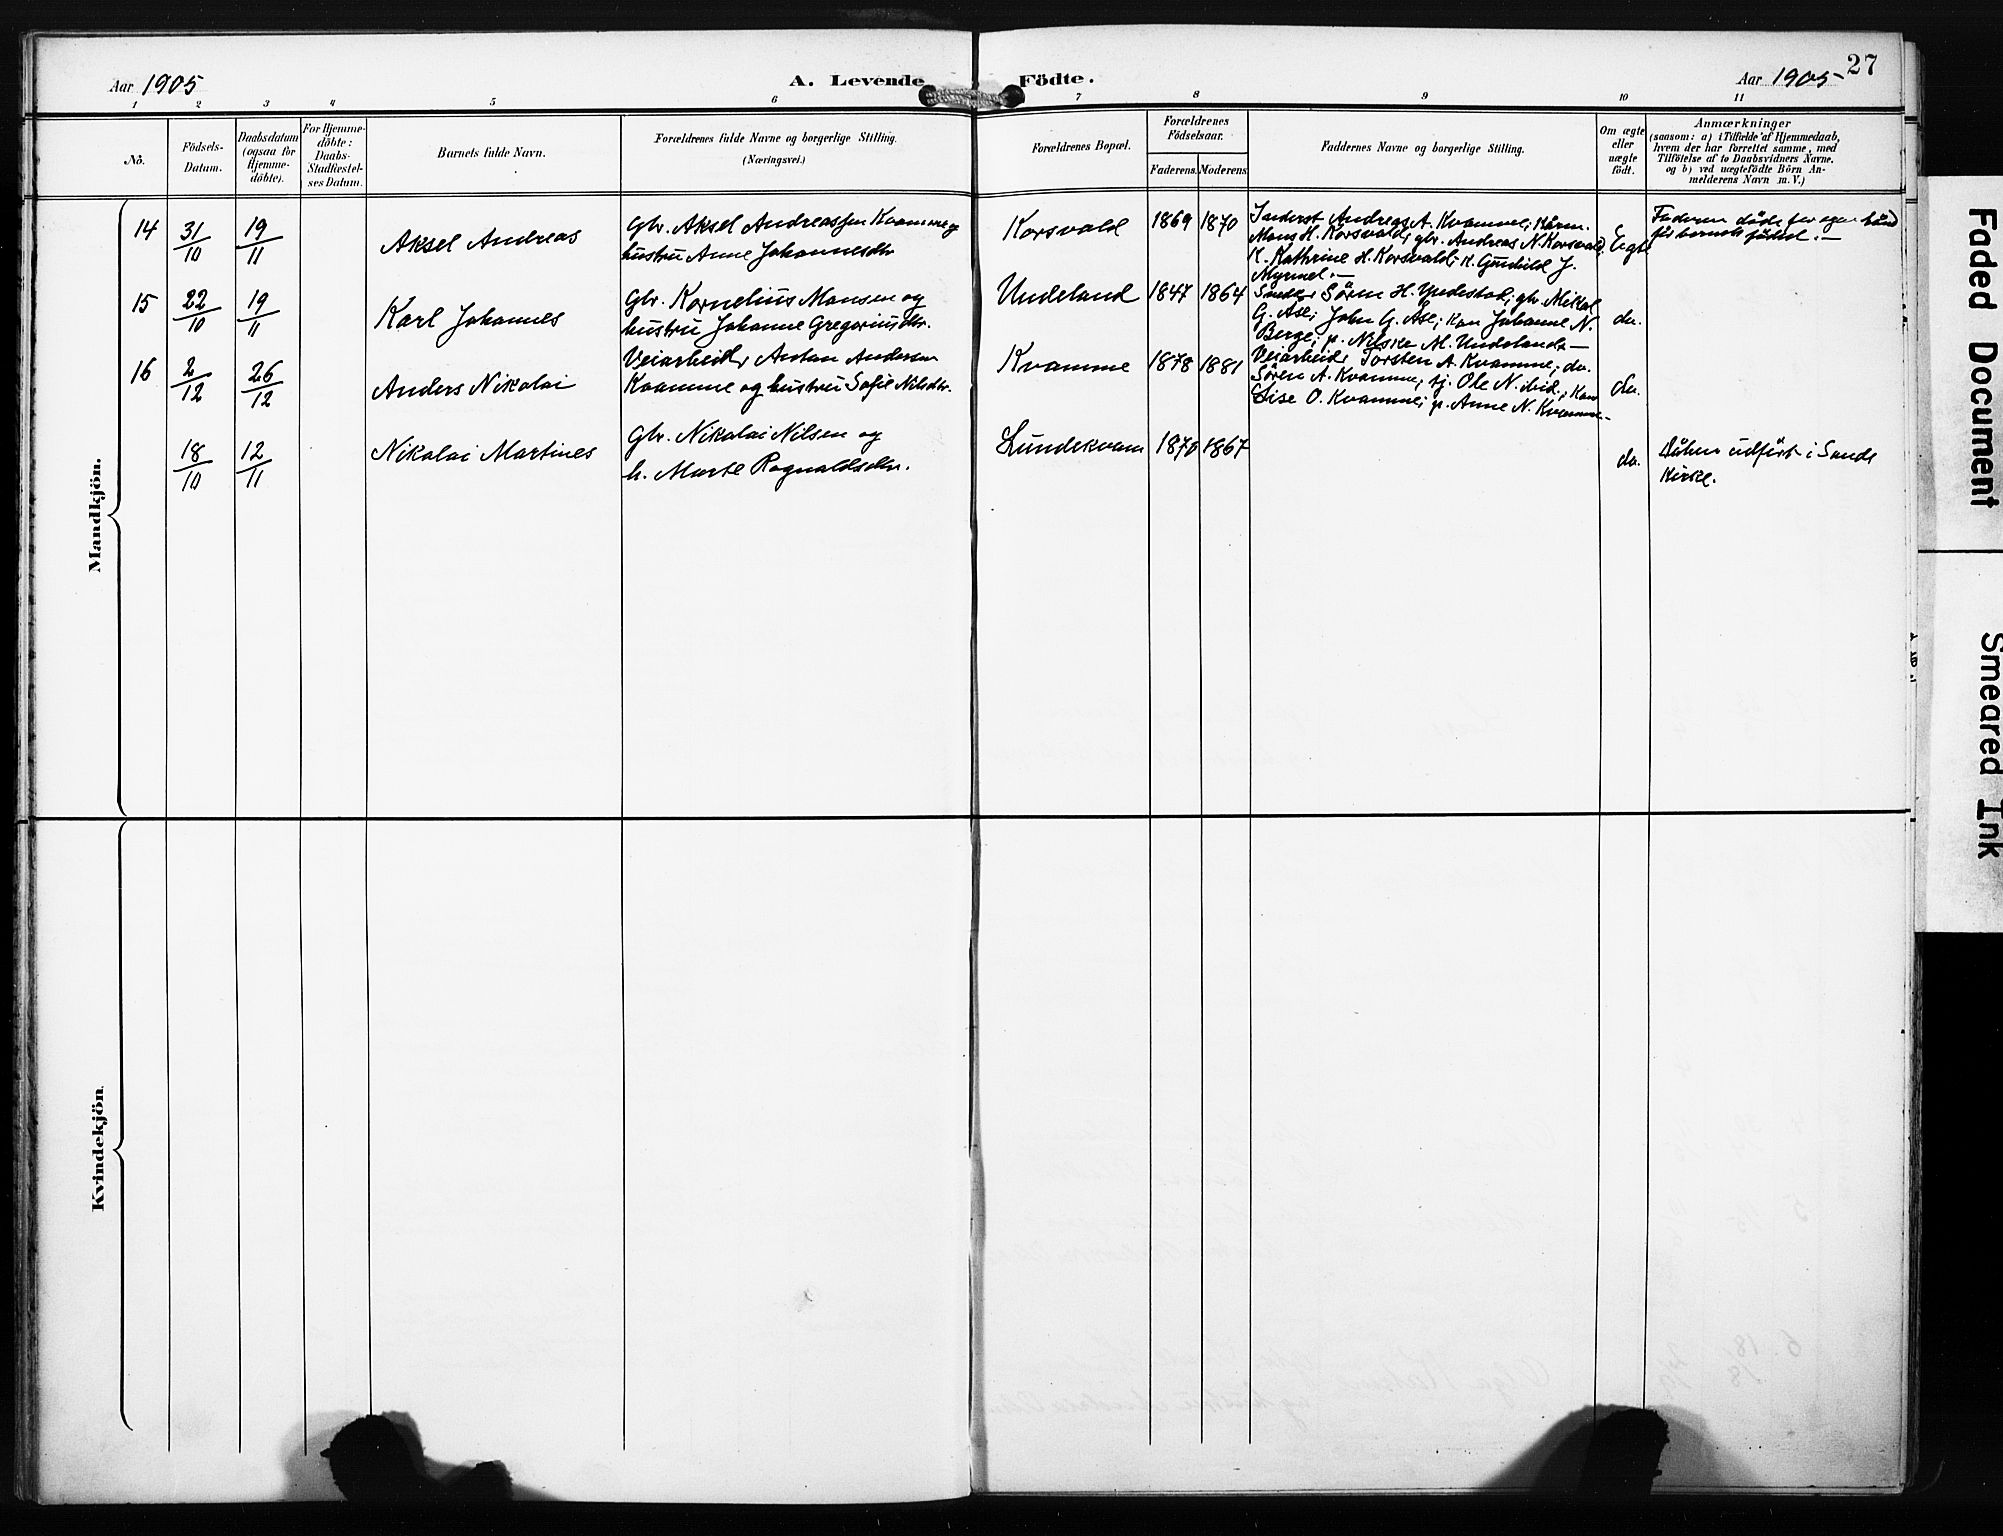 27
Aar 1905
A. Levende Födte.
Aar 1905
1 2 3 4 5 6 7 8 9 10 11
Nô.
Födsels-
Datum.
Daabsdatum
(ogsaa for
Hjemme-
döbte).
For Hjemme-
döbte:
Daabs-
Stadfæstel-
ses Datum.
Barnets fulde Navn.
Forældrenes fulde Navne og borgerlige Stilling.
(Næringsvei.)
Forældrenes Bopæl.
Forældrenes
Födselsaar.
Faderens. Moderens
Faddernes Navne og borgerlige Stilling.
Om ægte
eller
uægte
födt.
Anmærkninger
(saasom: a) i Tilfælde af Hjemmedaab,
hvem der har forrettet samme, med
Tilföielse af to Daabsvidners Navne.
og b) ved uægtefödte Börn An-
melderens Navn m. V.)
Mandkjön.
14
31/10
19/11
Aksel Andreas
Gbr. Aksel Andreassen Kvamme og
hustru Anne Johannesdtr
Korsvold
1869 1870
Inderst Andreas A. Kvamme;
Mons H. Korsvold; gbr. Andreas N. Korsvold;
K. Kathrine H. Korsvold; K. Gunhild J.
Myrmel.—
Ægte
Faderen döde for egen hånd
för barnets födsel.—
15
22/10
19/11
Karl Johannes
Gbr. Kornelius Monsen og
hustru Johanne Gregoriusdtr.
Undeland
1847 1864
Sören H. Yndestad; gbr. Mikkal
G. Åse; John G. Åse; Kon Johanne N.
Berge; p. Nilske M. Undeland.—
do.
16
2/12
26/12
Anders Nikolai
Veiarbeider Anton Andersen
Kvamme og hustru Sofie Nilsdtr.
Kvamme
1878 1881
Veiarbeider Torsten A. Kvamme; do.
Sören A. Kvamme; tj. Ole N. ibid.; Kon
Lise O. Kvamme; p. Anne N. Kvamme.—
do.
18/10
12/11
Nikolai Martines
Gbr. Nikolai Nilsen og
h. Marte Ragnaldsdtr.
Lundekvam
1870 1867
do.
Dåben udfört i Sande
Kirke.
Kvindekjön
Faded Document
Smeared Ink